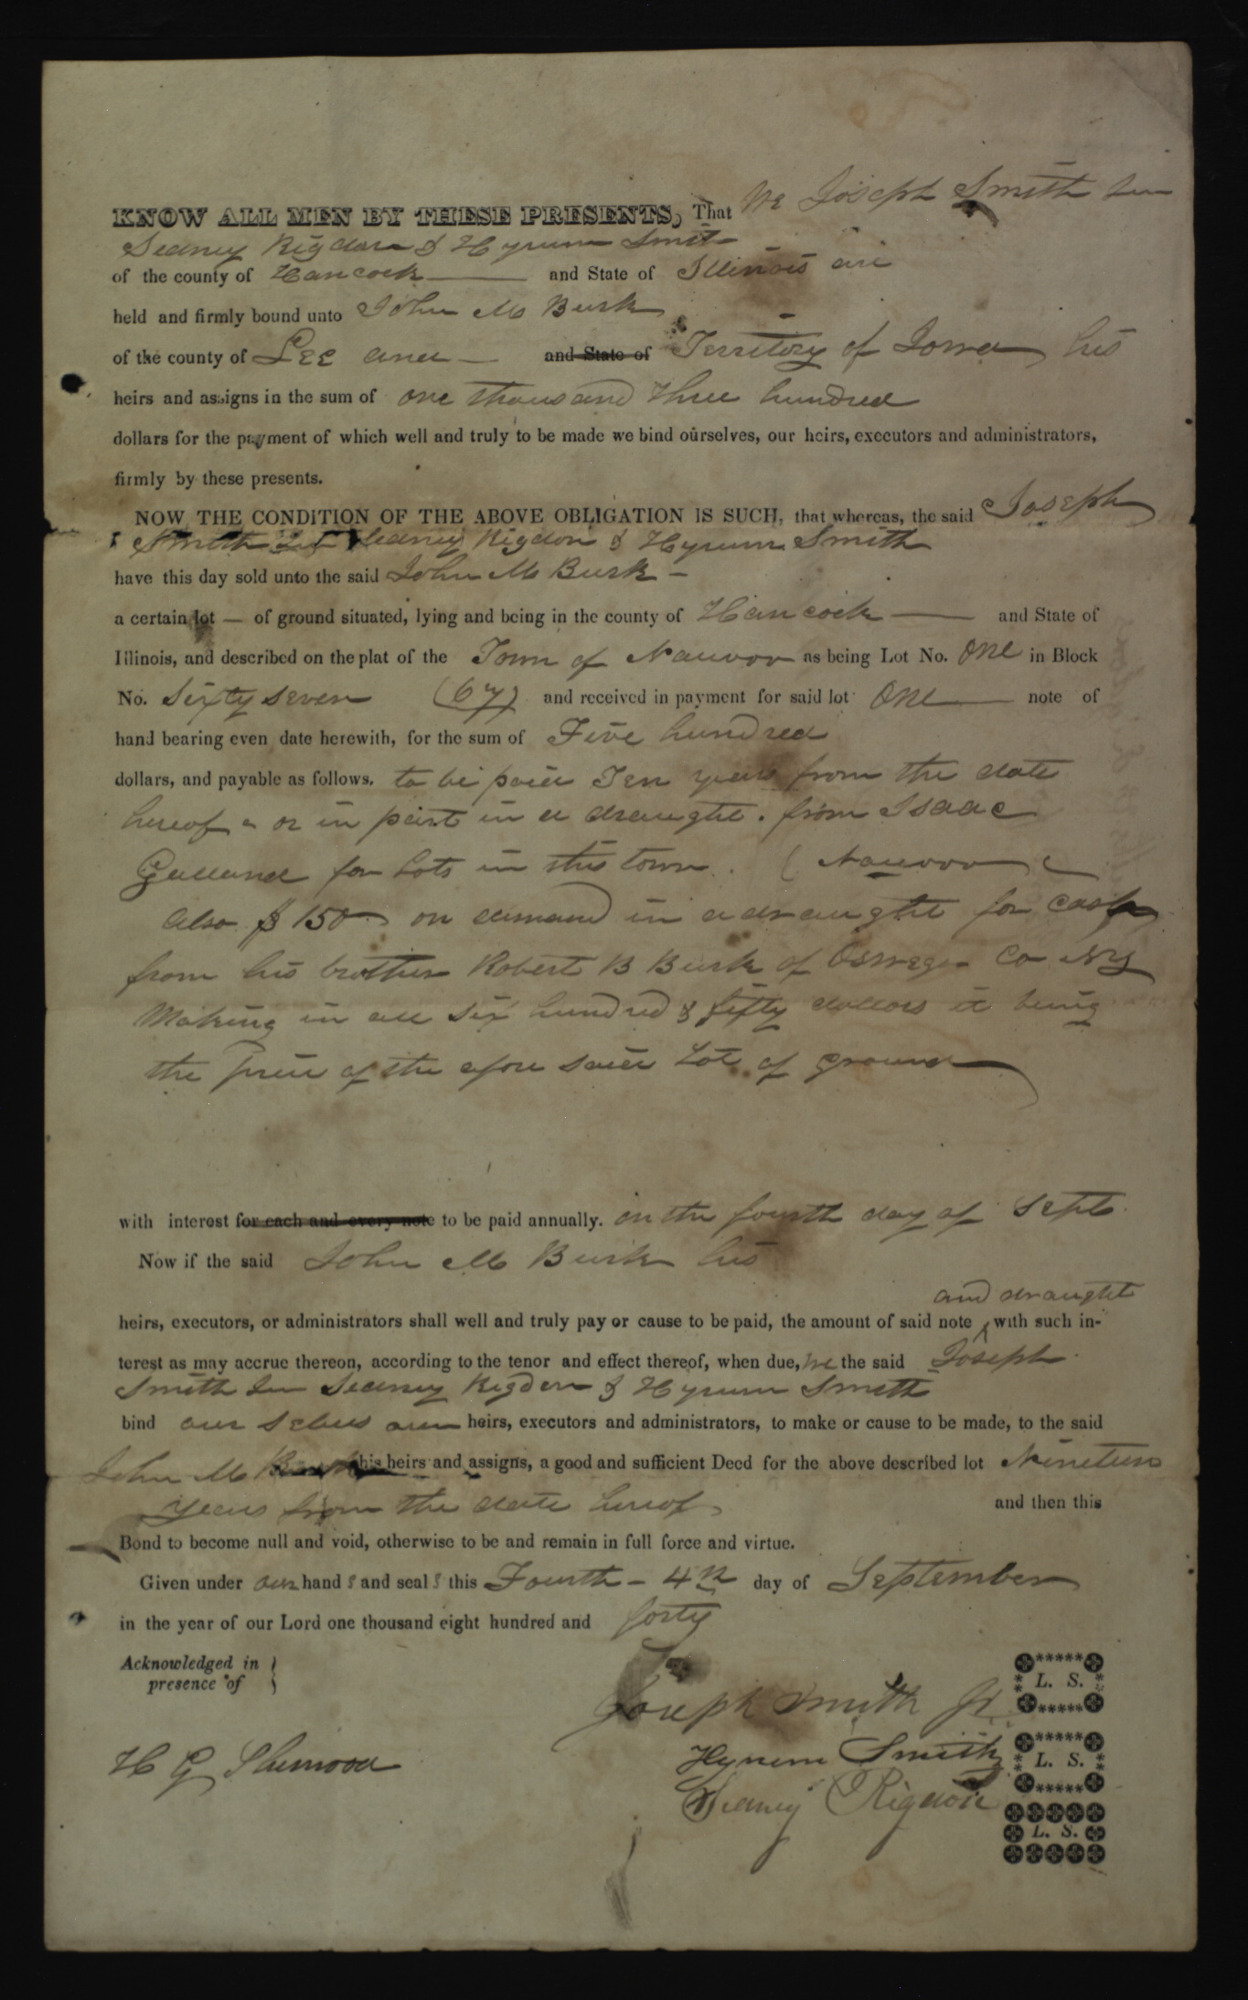 KNOW ALL MEN BY THESE PRESENTS, That We Joseph Smith Jun
Sedney Rigdon & Hyrum Smith
of the county of Hancock and State of Illinois are
held and firmly bound unto John M Burk
of the county of Lee and and State of Territory of Iowa his
heirs and assigns in the sum of one thousand three hundred
dollars for the payment of which well and truly to be made we bind ourselves, our heirs, executors and administrators,
firmly by these presents.
NOW THE CONDITION OF THE ABOVE OBLIGATION IS SUCH, that whereas, the said Joseph
Smith Jun Sedney Rigdon & Hyrum Smith
have this day sold unto the said John M Burk —
a certain lot — of ground situated, lying and being in the county of Hancock and State of
Illinois, and described on the plat of the Town of Nauvoo as being Lot No. one in Block
No. Sixty seven (67) and received in payment for said lot one note of
hand bearing even date herewith, for the sum of Five hundred
dollars, and payable as follows. to be paid Ten years from the date
hereof or in part in a draught. from Isaac
Galland for Lots in this town. (Nauvoo)
also $150 on demand in a draught for cash
from his brother Robert B Burk of Oswego Co NY
Making in all six hundred & fifty dollars it being
the price of the afore said Lot of ground
with interest for each and every note to be paid annually. on the fourth day of Septs.
Now if the said John M Burk his
and draught
heirs, executors, or administrators shall well and truly pay or cause to be paid, the amount of said note ^ with such in-
terest as may accrue thereon, according to the tenor and effect thereof, when due, we the said Joseph
Smith Jun Sedney Rigdon & Hyrum Smith
bind our selves our heirs, executors and administrators, to make or cause to be made, to the said
John M Burk his heirs and assigns, a good and sufficient Deed for the above described lot Nineteen
years from the date hereof and then this
Bond to become null and void, otherwise to be and remain in full force and virtue.
Given under our hand s and seal s this Fourth — 4th day of September
in the year of our Lord one thousand eight hundred and forty
Acknowledged in
presence of
Joseph Smith Jr L. S.
H G Sherwood
Hyrum Smith L. S.
Sidney Rigdon L. S.